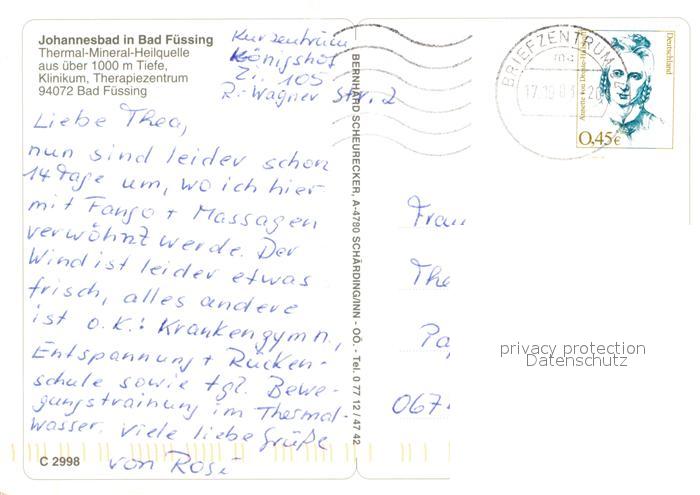 Johannesbad in Bad Füssing
Thermal-Mineral-Heilquelle
aus über 1000 m Tiefe,
Klinikum, Therapiezentrum
94072 Bad Füssing
Kurzentrum
Königshof
Zi. 105
R.-Wagner Str. 2
Liebe Thea,
nun sind leider schon
14 Tage um, wo ich hier
mit Fango + Massagen
verwöhnt werde. Der
Wind ist leider etwas
frisch, alles andere
ist o.k.: Krankengymn.,
Entspannung + Rücken-
schule sowie tgl. Bewe-
gungstraining im Thermal-
wasser. Viele liebe Grüße
von Rosi
C 2998
BERNHARD SCHEURECKER, A-4780 SCHÄRDING/INN - OÖ. - Tel. 0 77 12 / 47 42
BRIEFZENTRUM
Annette von Droste-Hülshoff
Deutschland
0,45€
Frau
The
Pa
067
privacy protection
Datenschutz